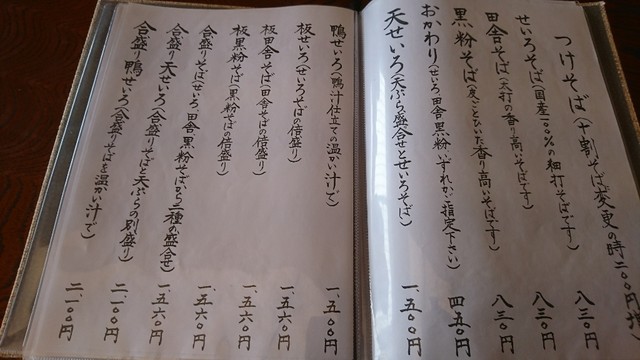 つけそば(十割そば変更の時二〇〇円増
せいろそば(国産一〇〇%の細打そばです) 八三〇円
田舎そば(太打の香り高いそばです) 八三〇円
黒粉そば(皮ごとひいた香り高いそばです) 八三〇円
おかわり(せいろ、田舎、黒粉いずれかご指定下さい) 四五〇円
天せいろ(天ぷら盛合せとせいろそば) 一、五〇〇円
鴨せいろ(鴨汁仕立ての温かい汁で) 一、五〇〇円
板せいろ(せいろそばの倍盛り) 一、五六〇円
板田舎そば(田舎そばの倍盛り) 一、五六〇円
板黒粉そば(黒粉そばの倍盛り) 一、五六〇円
合盛りそば(せいろ、田舎、黒粉そばから二種の盛合せ) 一、五六〇円
合盛り天せいろ(合盛りそばと天ぷらの別盛り) 二、一〇〇円
合盛り鴨せいろ(合盛りそばを温かい汁で) 二、一〇〇円